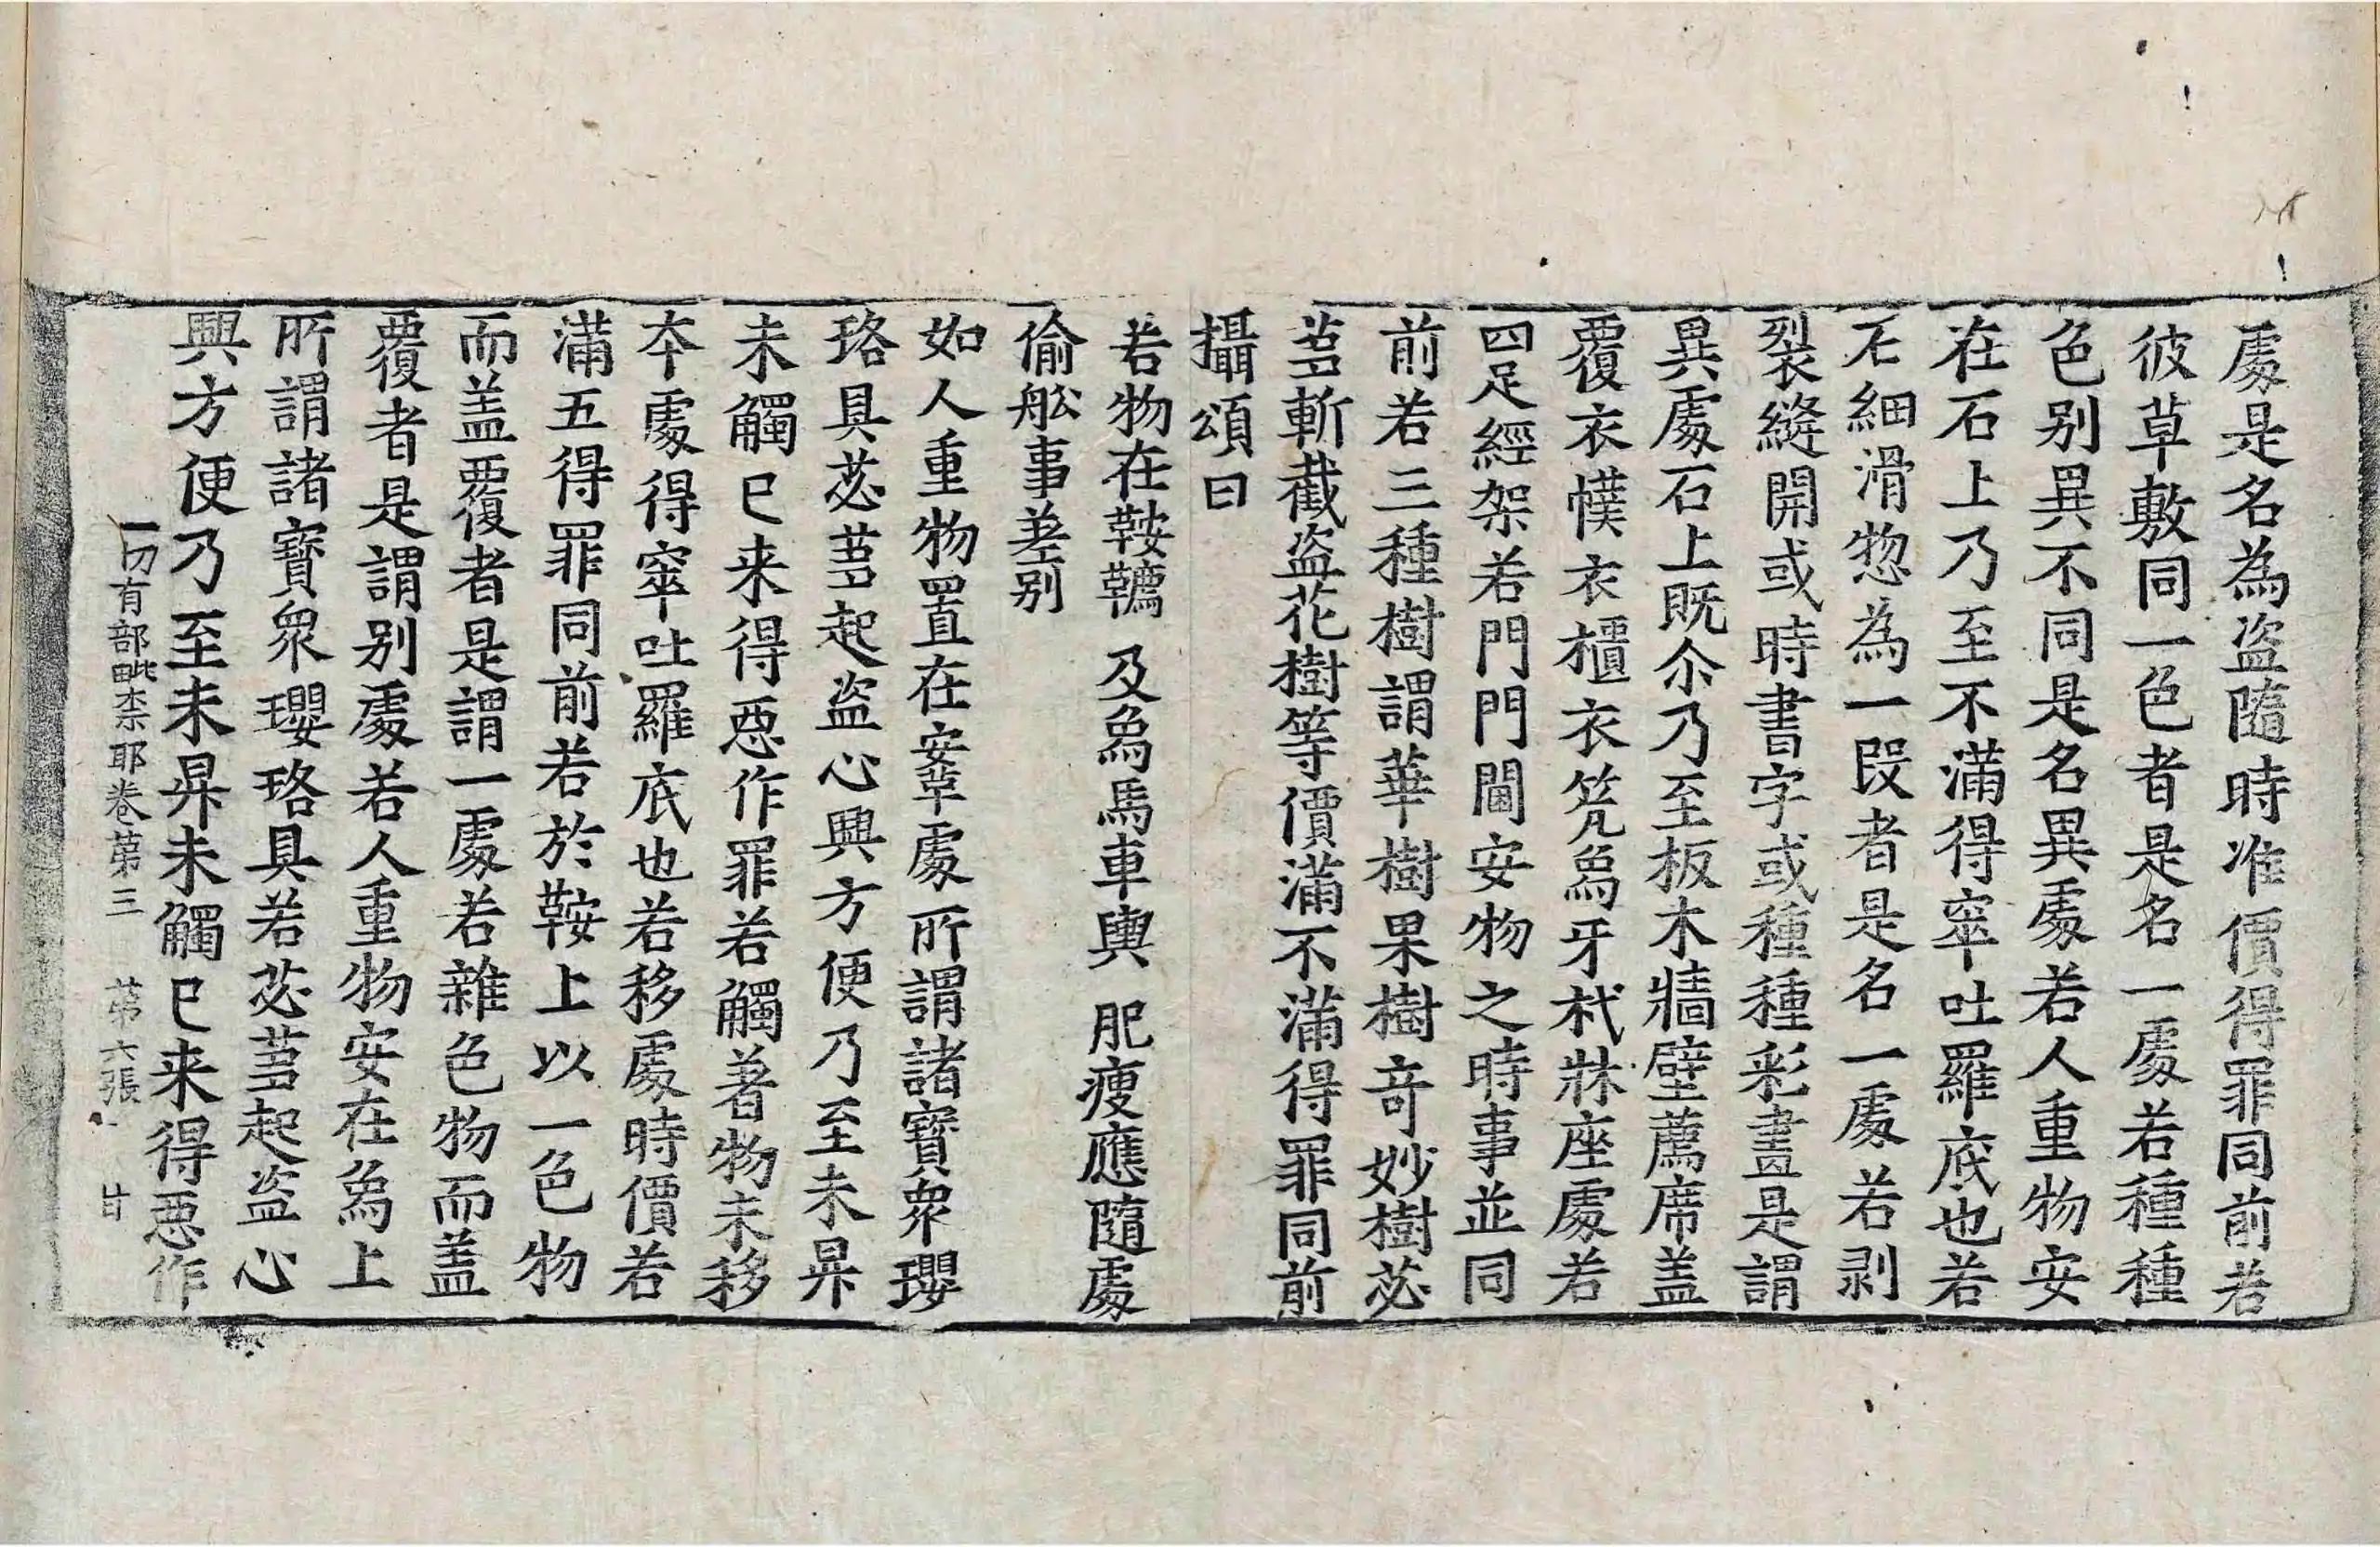 處是名為盜隨時准價得罪同前若
彼草敷同一色者是名一處若種種
色別異不同是名異處若人重物安
在石上乃至不滿得窣吐羅底也若
石細滑惣為一段者是名一處若剥
裂縫開或時書字或種種彩畫是謂
異處石上既尒乃至板木牆壁薦席盖
覆衣幞衣櫃衣笐象牙杙牀座處若
四足經架若門門閫安物之時事並同
前若三種樹謂華樹果樹奇妙樹苾
芻斬截盜花樹等價滿不滿得罪同前
攝頌曰
若物在鞍韉 及象馬車輿 肥瘦應隨處
偷舩事差别
如人重物置在安草處所謂諸寶衆瓔
珞具苾芻起盜心興方便乃至未昇
未觸已来得惡作罪若觸著物未移
本處得窣吐羅底也若移處時價若
滿五得罪同前若於鞍上以一色物
而盖覆者是謂一處若雜色物而盖
覆者是謂别處若人重物安在象上
所謂諸寶衆瓔珞具若苾芻起盜心
興方便乃至未昇未觸已来得惡作
一切有部毗柰耶卷苐三 苐六張 甘